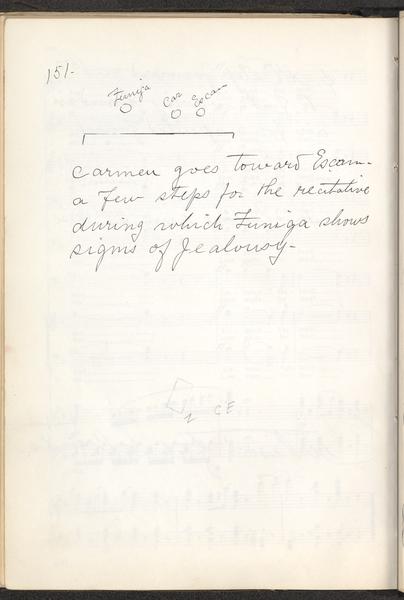 151-
Funiga Car Escam-
Carmen goes toward Escam-
a few steps for the recitative
during which Funiga shows
signs of Jealousy-
CE